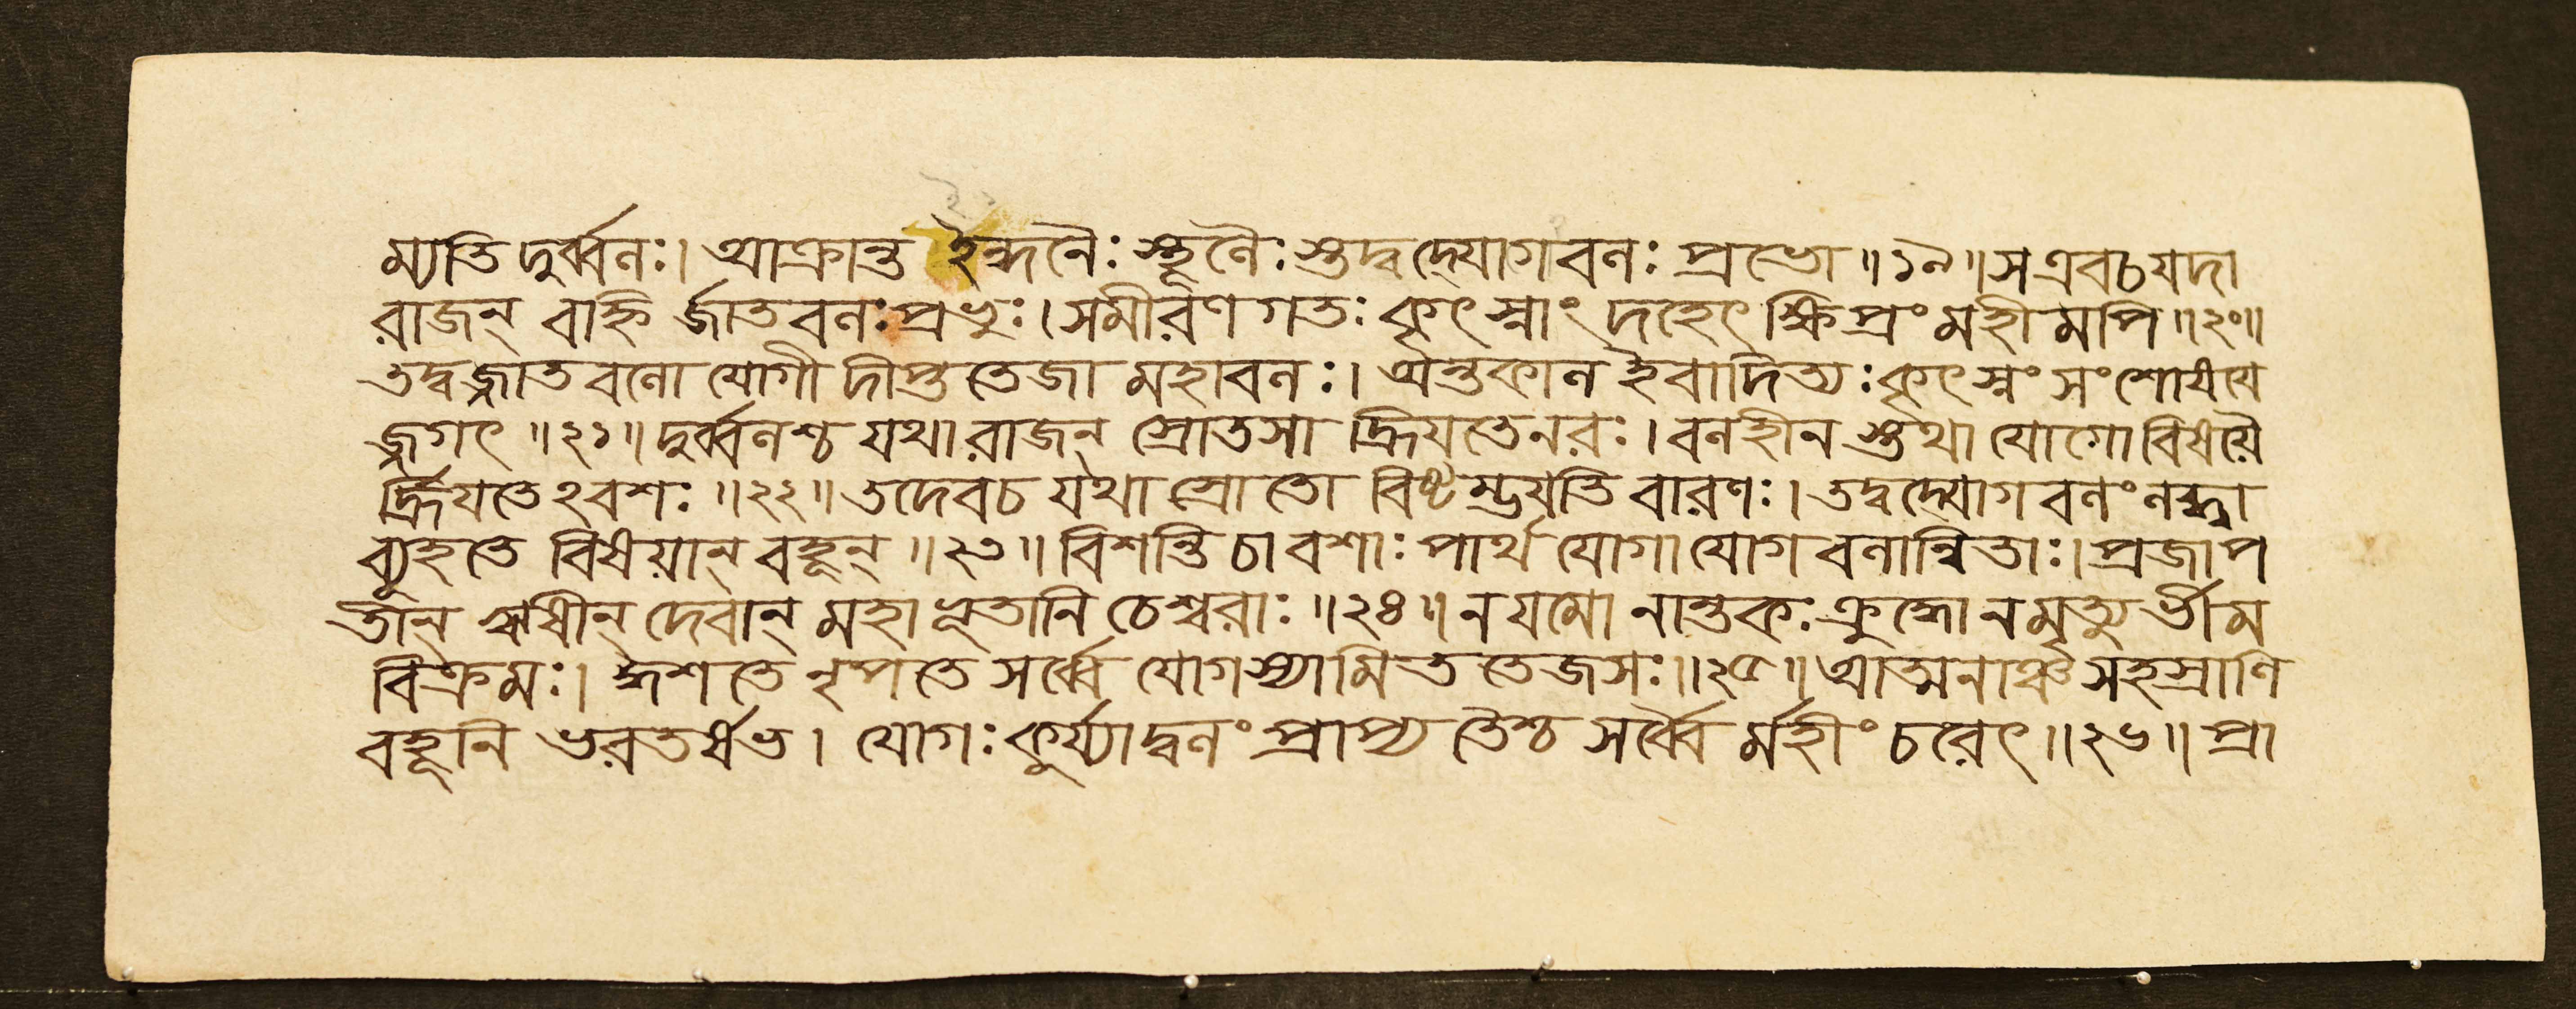 ম্যতি দুর্ব্বলঃ। আক্রান্ত ইন্ধনৈঃ স্থূলৈঃ স্তদ্বদ্যোগবলঃ প্রভো ॥১৯॥ স এব চ যদা
রাজন্ বহ্নি র্জাতবলঃ প্রভুঃ। সমীরণ গতঃ কৃৎস্নাং দহেৎ ক্ষিপ্রং মহীমপি ॥২০॥
তদ্বজ্জাতবলো যোগী দীপ্ততেজা মহাবলঃ। অন্তকাল ইবাদিত্যঃ কৃৎস্নং সংশোষয়ে
জ্জগৎ ॥২১॥ দুর্ব্বলশ্চ যথা রাজন্ স্রোতসা হ্রিয়তে নরঃ। বলহীন স্তথা যোগো বিষয়ৈ
র্হ্রিয়তে ঽবশঃ ॥২২॥ তদেব চ যথা স্রোতো বিষ্টম্ভয়তি বারণঃ। তদ্বদ্যোগবলং লব্ধ্বা
ব্যূহতে বিষয়ান্ বহূন্ ॥২৩॥ বিশন্তি চাবশাঃ পার্থ যোগা যোগবলান্বিতাঃ। প্রজাপ
তীন্ ঋষীন্ দেবান্ মহাভূতানি চেশ্বরাঃ ॥২৪॥ ন যমো নান্তকঃ ক্রুদ্ধো ন মৃত্যু র্ভীম
বিক্রমঃ। ঈশতে নৃপতে সর্ব্বে যোগস্যামিততেজসঃ ॥২৫॥ আত্মনাঞ্চ সহস্রাণি
বহূনি ভরতর্ষভ। যোগঃ কুর্য্যাদ্বলং প্রাপ্য তৈশ্চ সর্ব্বৈ র্মহীং চরেৎ ॥২৬॥ প্রা